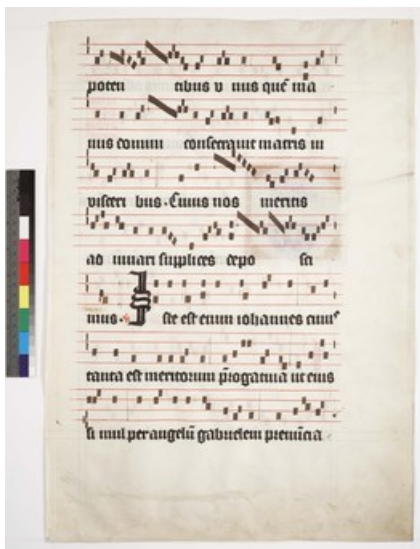 poten tibus v nus quē ma
nus domini consecrauit matris in
visceri bus. Cuius nos meritis
ad iuuari supplices depo sci
mus. Iste est enim iohannes cuius
tanta est meritorum p̄rogatiua ut eius
si mul per angelū gabrielem prenūcia